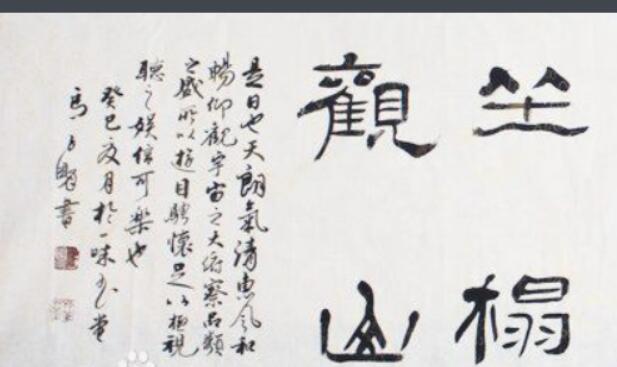 坐榻
觀山
是日也天朗氣清惠風和
暢仰觀宇宙之大俯察品類
之盛所以遊目騁懷足以極視
聽之娛信可樂也
癸巳夏月於一味堂
馬書